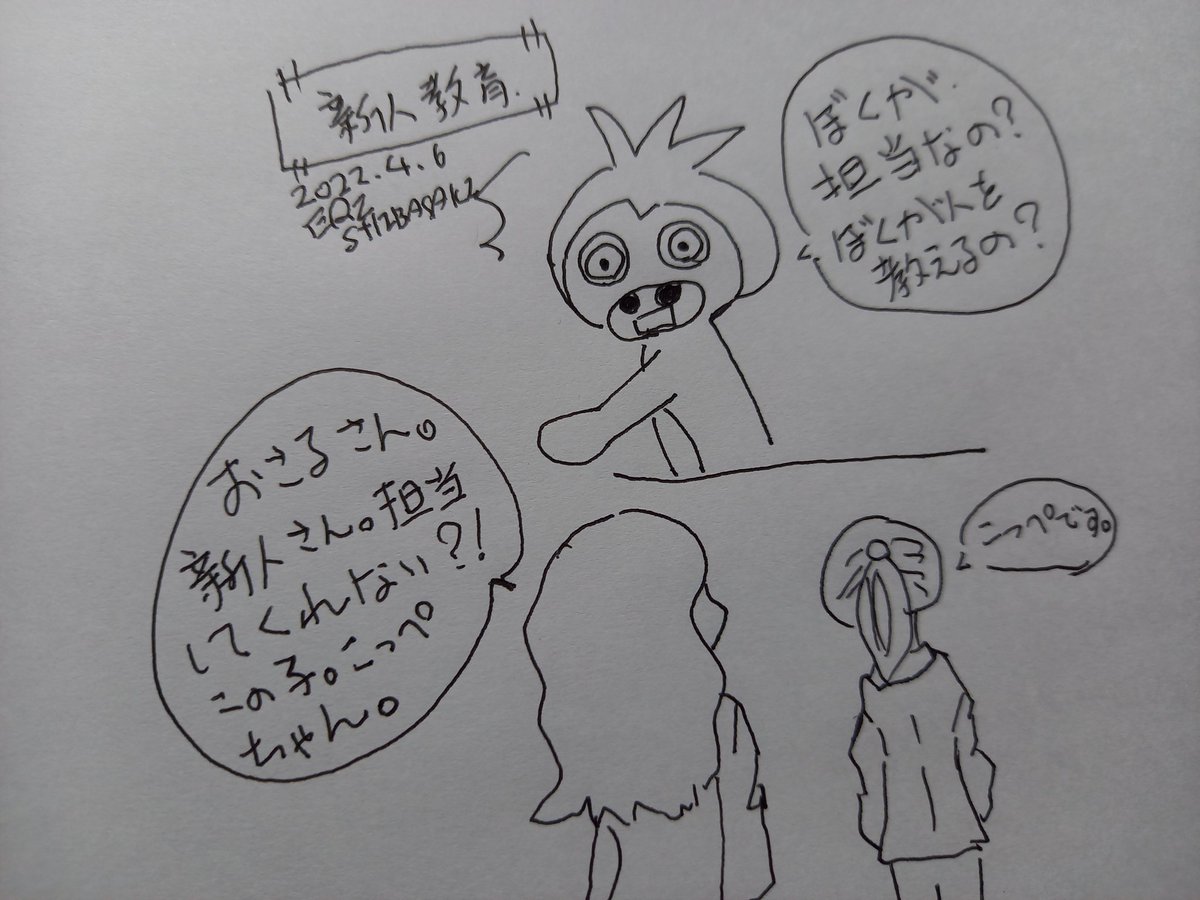 新人教育.
2022.4.6
おさるさん。
新人さん。担当
してくれない?!
この子。こっぺ
ちゃん。
ぼくが.
担当なの?
ぼくが人を
教えるの?
こっぺです。